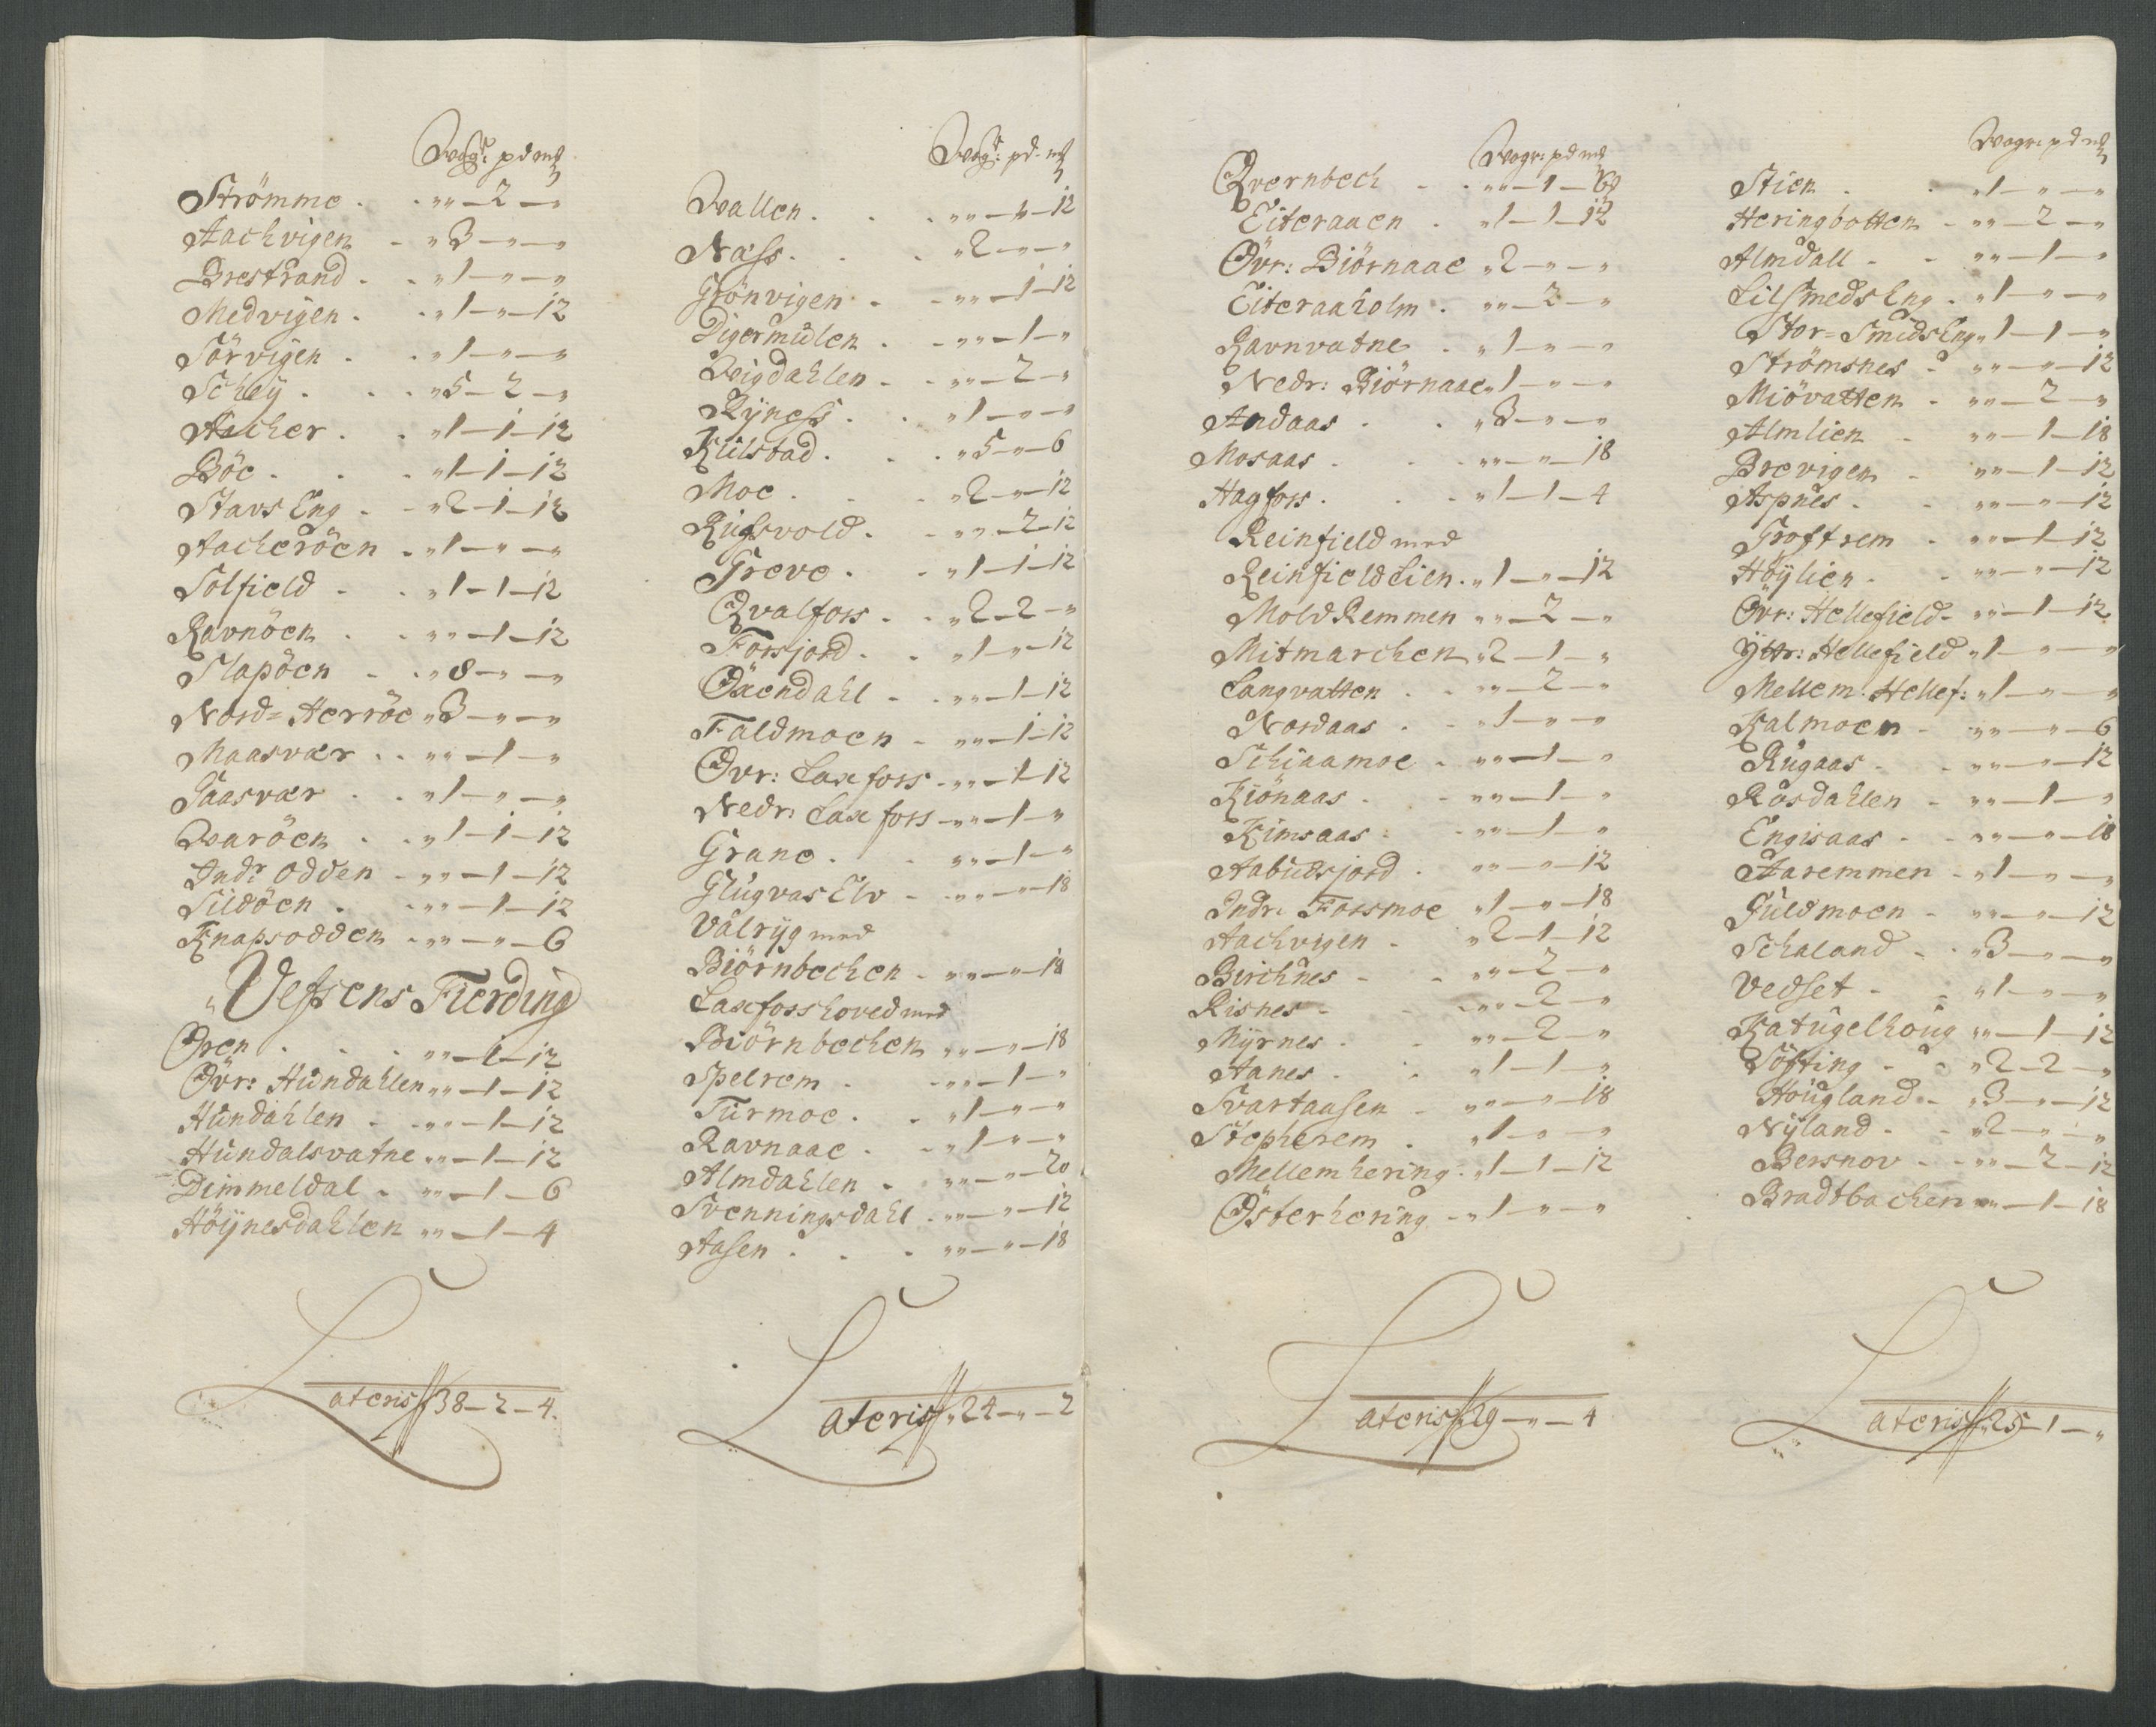 Wogr: pd mk
Strömme . . „„ — 2 — „
Aachvigen - „ 3 — „ — „
Brestrand . . „ 1 — „ — „
Medvigen . . „ 1 — „ — 12
Sörvigen . . „ 1 — „ — „
Schey . . . „ 5 — 2 — „
Aacher . . „ 1 — 1 — 12
Böe . . . „ 1 — 1 — 12
Stavs Eng . - „ 2 — 1 — 12
Aacheröen . „ 1 — „ — „
Solfield . . „ 1 — 1 — 12
Ravnöen . . „„ — 1 — 12
Slapöen . . „ 8 — „ — „
Nord= Herröe „ 3 — „ — „
Maasvær . . „„ — 1 — „
Gaasvær . . „ 1 — „ — „
Waröen . . „ 1 — 1 — 12
Indr Odden - „„ — 1 — 12
Sildöen . . „„ — 1 — 12
Knapsodden . „„ — „ — 6
„ Vefsens Fierding
Ören . . . „„ — 1 — 12
Övr: Hundahlen „„ — 1 — 12
Hundahlen . . „„ — 1 — 12
Hundalsvatne „„ — 1 — 12
Dimmeldal . „„ — 1 — 6
Höynesdahlen „„ — 1 — 4
Lateris 38 — 2 — 4.
Wogr: pd. mk
Wallen . . . „„ — 1 — 12
Næss . . . „ 2 — „ — „
Grönvigen . - „„ — 1 — 12
Digermulen . - „„ — 1 — „
Wigdahlen - . „„ — 2 — „
Ryness . . „ 1 — „ — „
Kulstad . . . „ 5 — „ — 6
Moe . . . „ 2 — „ — 12
Russvold . . „„ — 2 — 12
Greve . . „ 1 — 1 — 12
Qvalfors . . „ 2 — 2 — „
Forsjord . . „ 1 — „ — 12
Öxendahl - . „„ — 1 — 12
Faldmoen - „„ — 1 — 12
Övr: Laxefors - „„ — 1 — 12
Nedr: Laxefors - „„ — 1 — „
Grane . . „„ — 1 — „
Glugvas Elv - . „„ — „ — 18
Vålryg med
Biörnbechen - „„ — „ — 18
Laxeforshoved med
Biörnbechen „„ — „ — 18
Spelrem . - „„ — 1 — „
Turmoe . . „ 1 — „ — „
Ravnaae . . „ 1 — „ — „
Almdahlen . „„ — „ — 20
Svenningsdahl . „„ — „ — 12
Aasen . . . „„ — „ — 18
Lateris „ 24 — „ — 2
Wogr: pd mk
Qvernbech - . „„ — 1 — 6
Eiteraaen . „ 1 — 1 — 12
Övr: Biörnaae „ 2 — „ — „
Eiteraaholm . „„ — 2 — „
Ravnvatne . „ 1 — „ — „
Nedr: Biörnaae „ 1 — „ — „
Andaas . . „ 3 — „ — „
Mosaas . . . „„ — „ — 18
Hagfors . . . „ 1 — 1 — 4
Reinfield med
Reinfieldlien . „ 1 — „ — 12
Mold Remmen „„ — 2 — „
Mitmarchen „ 2 — 1 — „
Langvatten . . „„ — 2 — „
Nordaas . - „ 1 — „ — „
Schiaamoe . „„ — 1 — „
Kiönaas . - „„ — 1 — „
Kimsaas . . „„ — 1 — „
Aabudsjord . „„ — „ — 12
Indr: Forsmoe „ 1 — „ — 18
Aachvigen . „ 2 — 1 — 12
Birchnes - - „„ — 2 — „
Risnes - . „„ — 2 — „
Myrnes . . „„ — 2 — „
Aanes . . „ 1 — 1 — „
Svartaasen - „„ — „ — 18
Stepherem . „ 1 — „ — „
Mellemhering . „ 1 — 1 — 12
Österhering - „ 1 — „ — „
Lateris „ 29 — „ — 4
Wogr: pd mk
Stien . . „ 1 — „ — „
Heringbotten - „„ — 2 — „
Almdall - - „„ — 1 — „
Lilsmeds Eng . „ 1 — „ — „
Stor= Smids Eng „ 1 — 1 — „
Strömsnes - „„ — „ — 12
Miövatten . „„ — 2 — „
Almlien - „„ — 1 — 18
Brevigen - „„ — 1 — 12
Aspnes . . „„ — „ — 12
Groftrem - „„ — 1 — 12
Höylien . . „„ — „ — 12
Övr: Hellefield - „„ — 1 — 12
Yttr: Hellefield „ 1 — „ — „
Mellem Hellef: „ 1 — „ — „
Kalmoen - „„ — „ — 6
Rugaas . . „„ — „ — 12
Rosdahlen - „„ — 1 — „
Engisaas . - „„ — „ — 18
Aaremmen - „ 1 — „ — „
Guldmoen - „„ — „ — 12
Schaland - . „ 3 — „ — „
Vedset - - „ 1 — „ — „
Katugelhoug „„ — 1 — 12
Söfting - - „ 2 — 2 — „
Hougland - „ 3 — „ — 12
Nyland . - „ 2 — „ — „
Bersnov - - „„ — 2 — 12
Bradtbachen „„ — 1 — 18
Lateris „ 25 — 1 — „